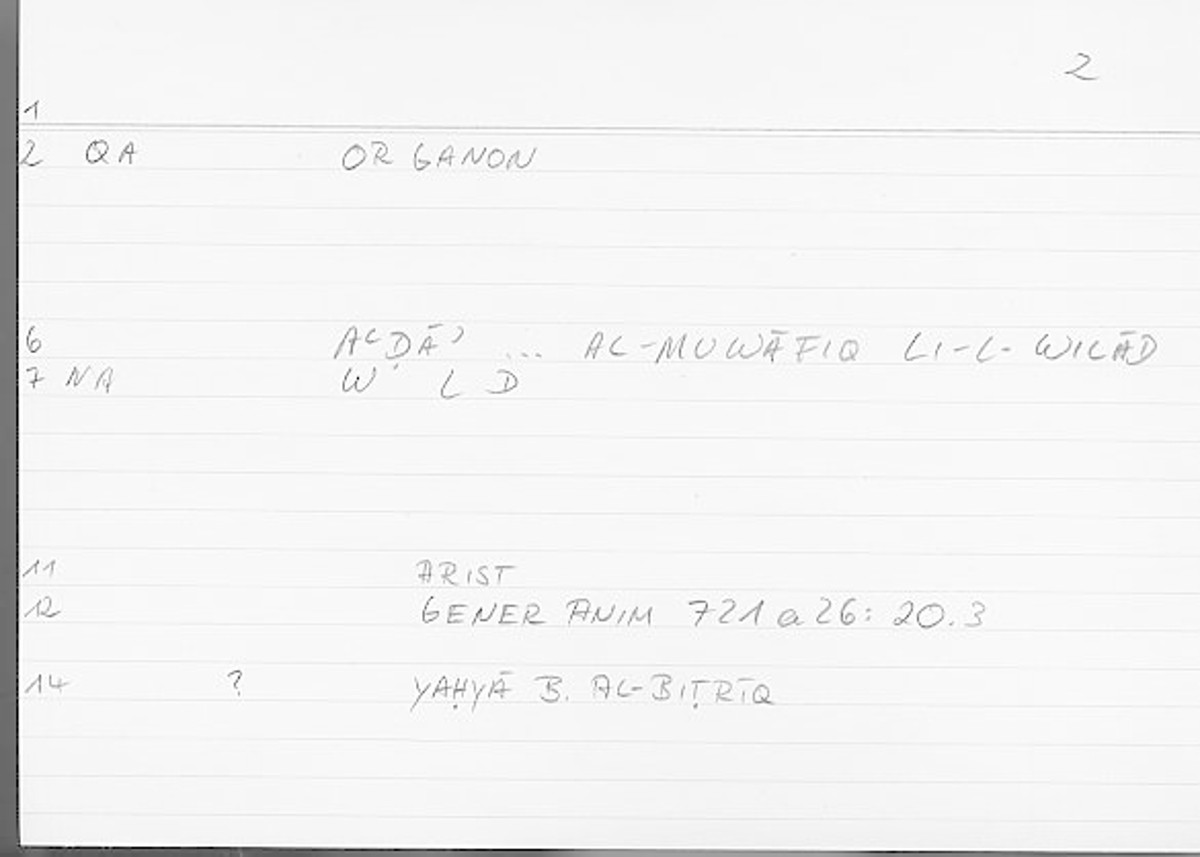 2
1
2 QA ORGANON
6 AʿḌĀʾ ... AL-MUWĀFIQ LI-L-WILĀD
7 NA W L D
11 ARIST
12 GENER ANIM 721 a 26: 20.3
14 ? YAḤYĀ B. AL-BIṬRĪQ